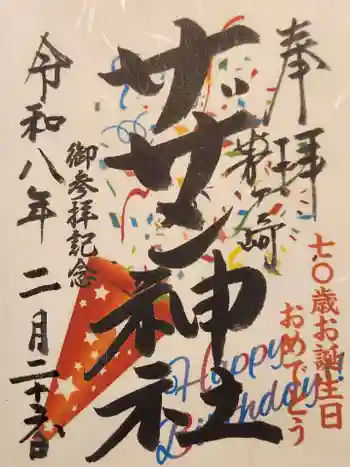 奉拝
茅ヶ崎
サザン神社
御参拝記念
令和八年二月二十六日
七〇歳お誕生日
おめでとう
Happy
Birthday!